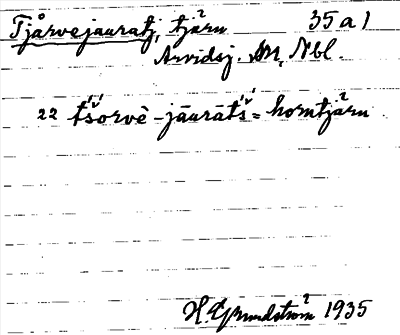 Tjårvejauratj, tjärn 35 a 1
Arvidsj. sn, Nbl.
22 t́š́orvē-jāurātš́ = horntjärn
H. Grundström 1935